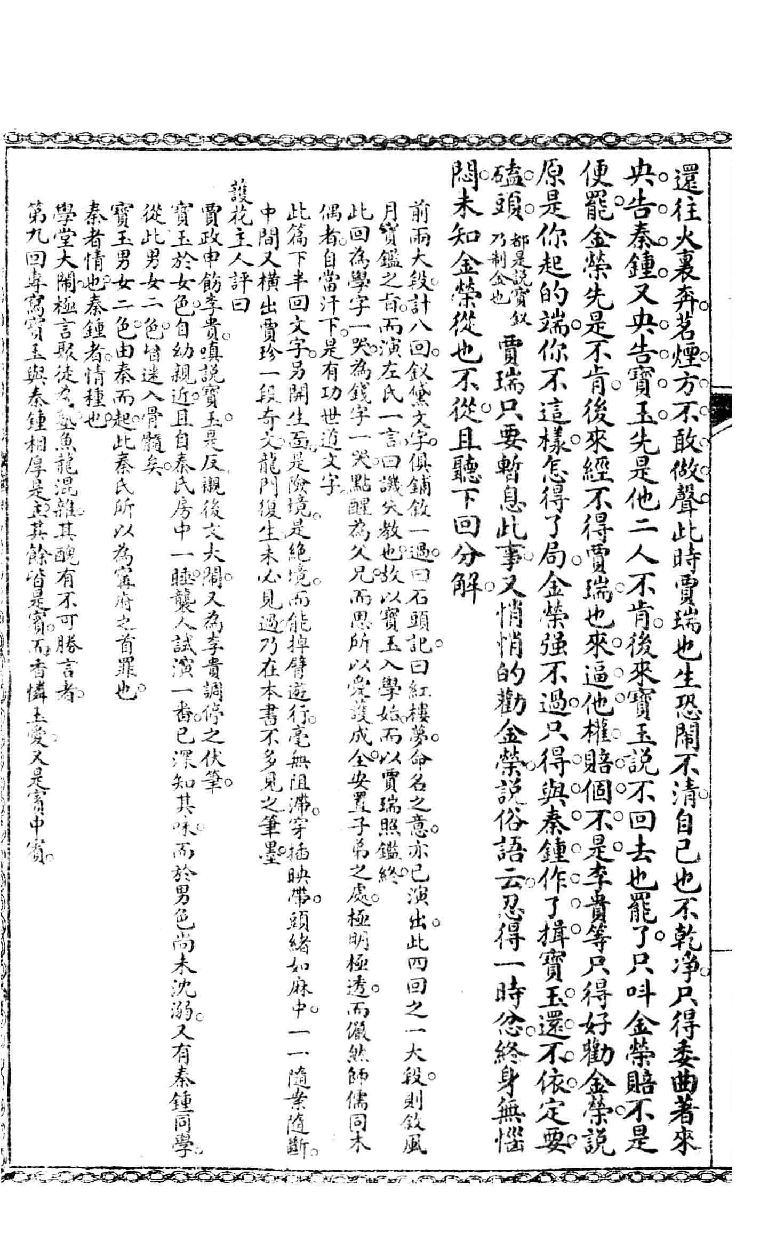 還往火裏奔茗煙方不敢做聲此時賈瑞也生恐鬧不清自己也不乾淨只得委曲著來
央告秦鐘又央告寶玉先是他二人不肯後來寶玉說不回去也罷了只呌金榮賠不是
便罷金榮先是不肯後來經不得賈瑞也來逼他權賠個不是李貴等只得好勸金榮說
原是你起的端你不這樣怎得了局金榮强不過只得與秦鐘作了揖寶玉還不依定要
磕頭都是説寶釵乃制金也賈瑞只要暫息此事又悄悄的勸金榮說俗語云忍得一時忿終身無惱
悶未知金榮從也不從且聽下回分解
前兩大段計八回釵黛文字俱鋪敘一過曰石頭記曰紅樓夢命名之意亦已演出此四回之一大段則敘風
月寶鑑之旨而演左氏一言曰譏失教也故以寶玉入學始而以賈瑞照鑑終
此回為學字一哭為錢字一哭點醒為父兄而思所以愛護成全安置子弟之處極明極透而儼然師儒同木
偶者自當汗下是有功世道文字
此篇下半回文字另開生面是險境是絕境而能掉臂遊行毫無阻滯穿插映帶頭緒如麻中一一隨案隨斷
中間又橫出賈珍一段奇文龍門復生未必見過乃在本書不多見之筆墨
護花主人評曰
賈政申飭李貴嗔說寶玉是反襯後文大鬧又為李貴調停之伏筆
寶玉於女色自幼親近且自秦氏房中一睡襲人試演一番已深知其味而於男色尚未沈溺又有秦鐘同學
從此男女二色皆迷入骨髓矣
寶玉男女二色由秦而起此秦氏所以為甯府之首罪也
秦者情也秦鐘者情種也
學堂大鬧極言聚徒為塾魚龍混雜其醜有不可勝言者
第九回專寫寶玉與秦鐘相厚是主其餘皆是賓而香憐玉愛又是賓中賓